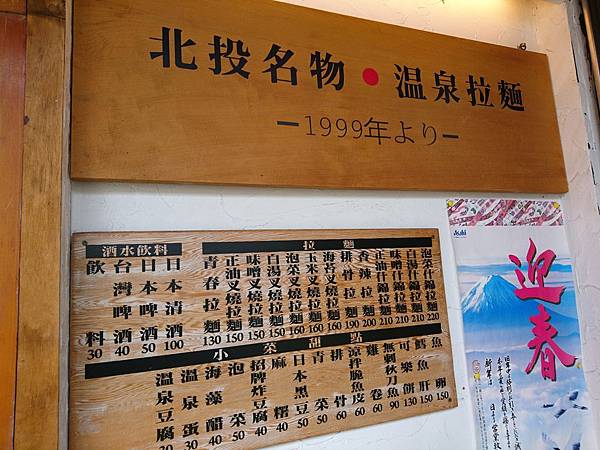 北投名物●温泉拉麵
ー1999年より一
酒水飲料
日本清酒100
日本啤酒50
台灣啤酒40
飲料30
拉麵
泡菜什錦拉麵220
白湯什錦拉麵210
味噌什錦拉麵210
正油什錦拉麵210
香辣拉麵200
排骨拉麵190
海苔叉燒拉麵160
玉米叉燒拉麵160
泡菜叉燒拉麵160
白湯叉燒拉麵150
味噌叉燒拉麵150
正油叉燒拉麵150
青春拉麵130
小菜甜點
魚卵150
鱈魚肝150
可樂餅130
秋刀魚90
雞卷60
涼拌脆魚皮60
排骨60
青菜50
日本黑豆50
麻糬40
招牌炸豆腐40
泡菜50
海藻醋40
溫泉蛋30
溫泉豆腐30
Asahi
迎春